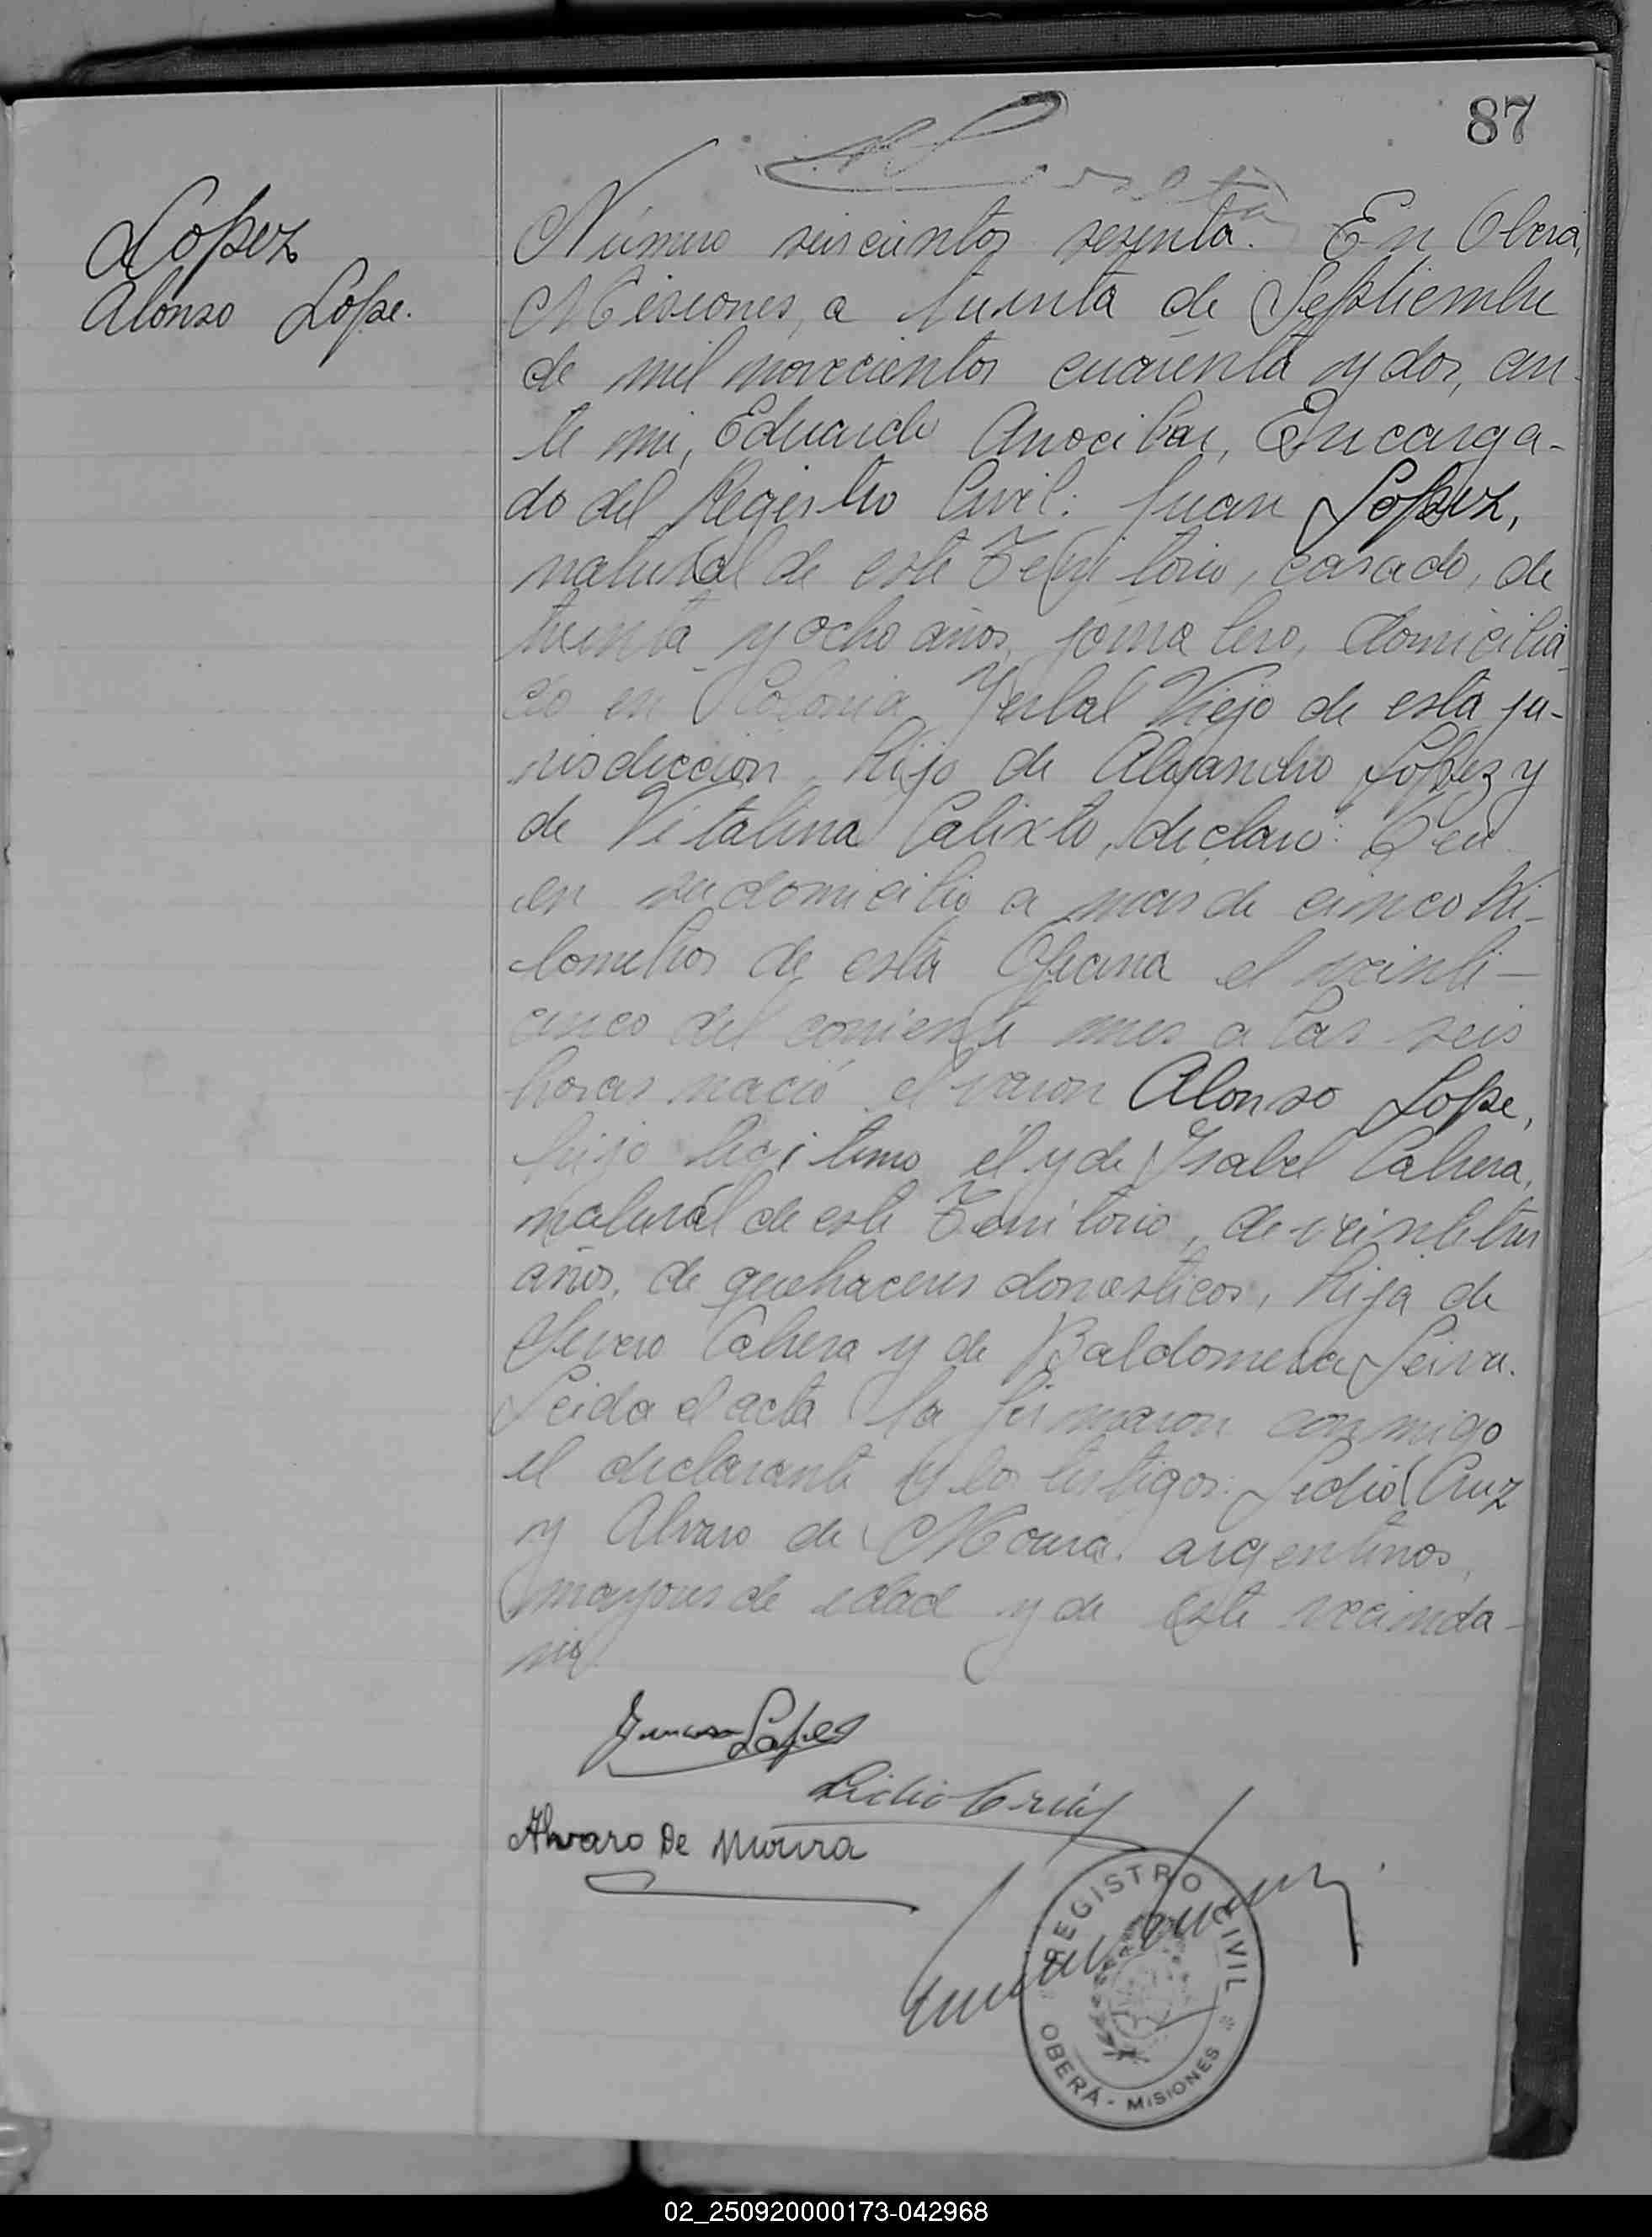 87
Lopez
Alonso Lope.
Número seiscientos sesenta. En Oberá,
Misiones, a treinta de Septiembre
de mil novecientos cuarenta y dos, an-
te mi, Eduardo Anocibar, Encarga-
do del Registro Civil: Juan Lopez,
natural de este Territorio, casado, de
treinta y ocho años, jornalero, domicilia-
do en Colonia Yerbal Viejo de esta ju-
risdicción, hijo de Alejandro López y
de Vitalina Calixto, declaró: Que
en su domicilio a mas de cinco ki-
lometros de esta Oficina el veinti-
cinco del corriente mes a las seis
horas nació el varon Alonso Lope,
hijo legitimo él y de Ysabel Cabrera,
natural de este Territorio, de veintetres
años, de quehaceres domesticos, hija de
Cabrera y de Baldomera Leiva.
Leida el acta la firmaron conmigo
el declarante y los testigos: Lidio Cruz
y Alvaro de Moura. argentinos,
mayores de edad y de este vecinda-
rio.
Juan Lopez
Lidio Cruz
Alvaro De Moura
REGISTRO CIVIL
OBERÁ - MISIONES
02_250920000173-042968